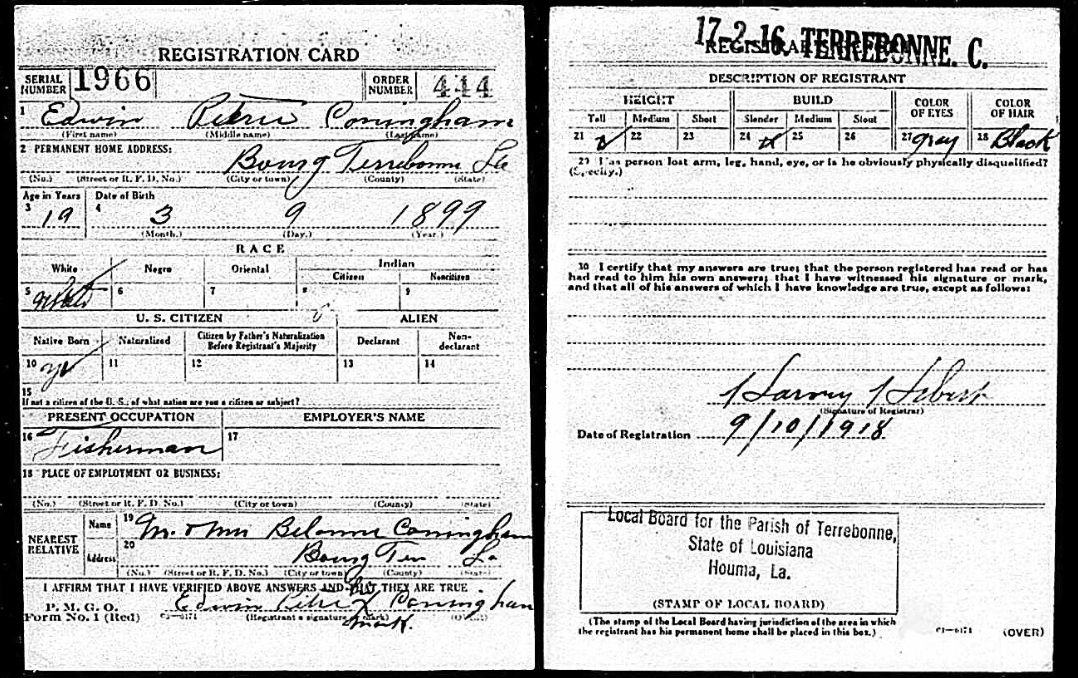 REGISTRATION CARD
SERIAL NUMBER 1966 ORDER NUMBER 444
1 Edwin Petrie Coningham
(First name) (Middle name) (Last name)
2 PERMANENT HOME ADDRESS:
Bourg Terrebonne La
(No.) (Street or R. F. D. No.) (City or town) (County) (State)
Age in Years Date of Birth
3 19 4 3 9 1899
(Month.) (Day.) (Year.)
RACE
White Negro Oriental Indian
Citizen Noncitizen
5 White 6 7 8 9
U. S. CITIZEN ALIEN
Native Born Naturalized Citizen by Father's Naturalization Before Registrant's Majority Declarant Non-declarant
10 11 12 13 14
15
If not a citizen of the U. S., of what nation are you a citizen or subject?
PRESENT OCCUPATION EMPLOYER'S NAME
16 Fisherman 17
18 PLACE OF EMPLOYMENT OR BUSINESS:
(No.) (Street or R. F. D. No.) (City or town) (County) (State)
NEAREST RELATIVE Name 19 Coningham
Address 20 Bourg Ter La
(No.) (Street or R. F. D. No.) (City or town) (County) (State)
I AFFIRM THAT I HAVE VERIFIED ABOVE ANSWERS AND THAT THEY ARE TRUE
P. M. G. O.
Form No. 1 (Red) Edwin Petrie X Coningham
(Registrant's signature or mark) (OVER)
mark.
17-2-16 TERREBONNE. C.
REGISTRAR'S REPORT
DESCRIPTION OF REGISTRANT
HEIGHT BUILD COLOR OF EYES COLOR OF HAIR
Tall Medium Short Slender Medium Stout
21 22 23 24 25 26 27 gray 28 Black
29 Has person lost arm, leg, hand, eye, or is he obviously physically disqualified?
(Specify.)
30 I certify that my answers are true; that the person registered has read or has
had read to him his own answers; that I have witnessed his signature or mark,
and that all of his answers of which I have knowledge are true, except as follows:
Harvey
(Signature of Registrar)
Date of Registration 9/10/1918
Local Board for the Parish of Terrebonne,
State of Louisiana
Houma, La.
(STAMP OF LOCAL BOARD)
(The stamp of the Local Board having jurisdiction of the area in which
the registrant has his permanent home shall be placed in this box.)
(OVER)